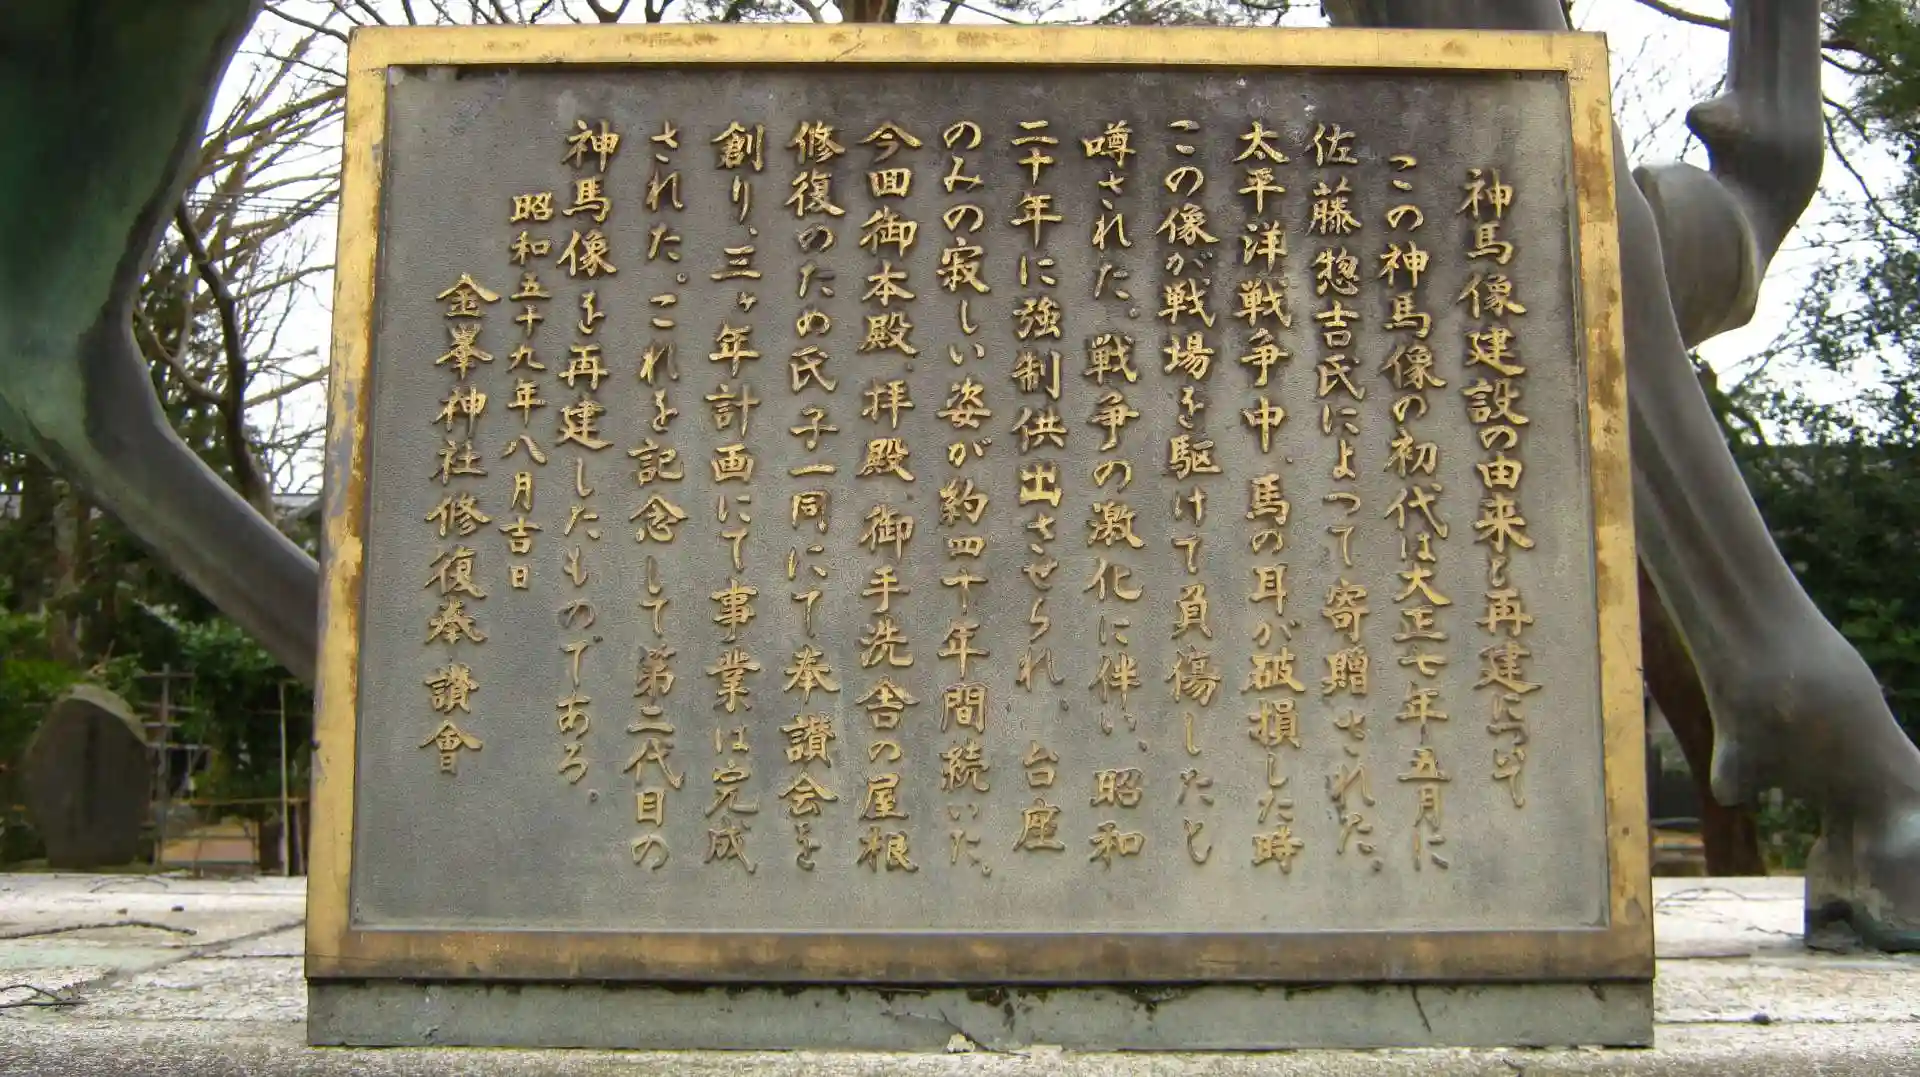 神馬像建設の由来と再建について
この神馬像の初代は大正七年五月に
佐藤惣吉氏によつて寄贈された。
太平洋戦争中、馬の耳が破損した時
この像が戦場を駆けて負傷したと
噂された。戦争の激化に伴い、昭和
二十年に強制供出させられ、台座
のみの寂しい姿が約四十年間続いた。
今回御本殿、拝殿、御手洗舎の屋根
修復のため氏子一同にて奉讃会を
創り、三ヶ年計画にて事業は完成
された。これを記念して第二代目の
神馬像を再建したものである。
昭和五十九年八月吉日
金峯神社修復奉讃會